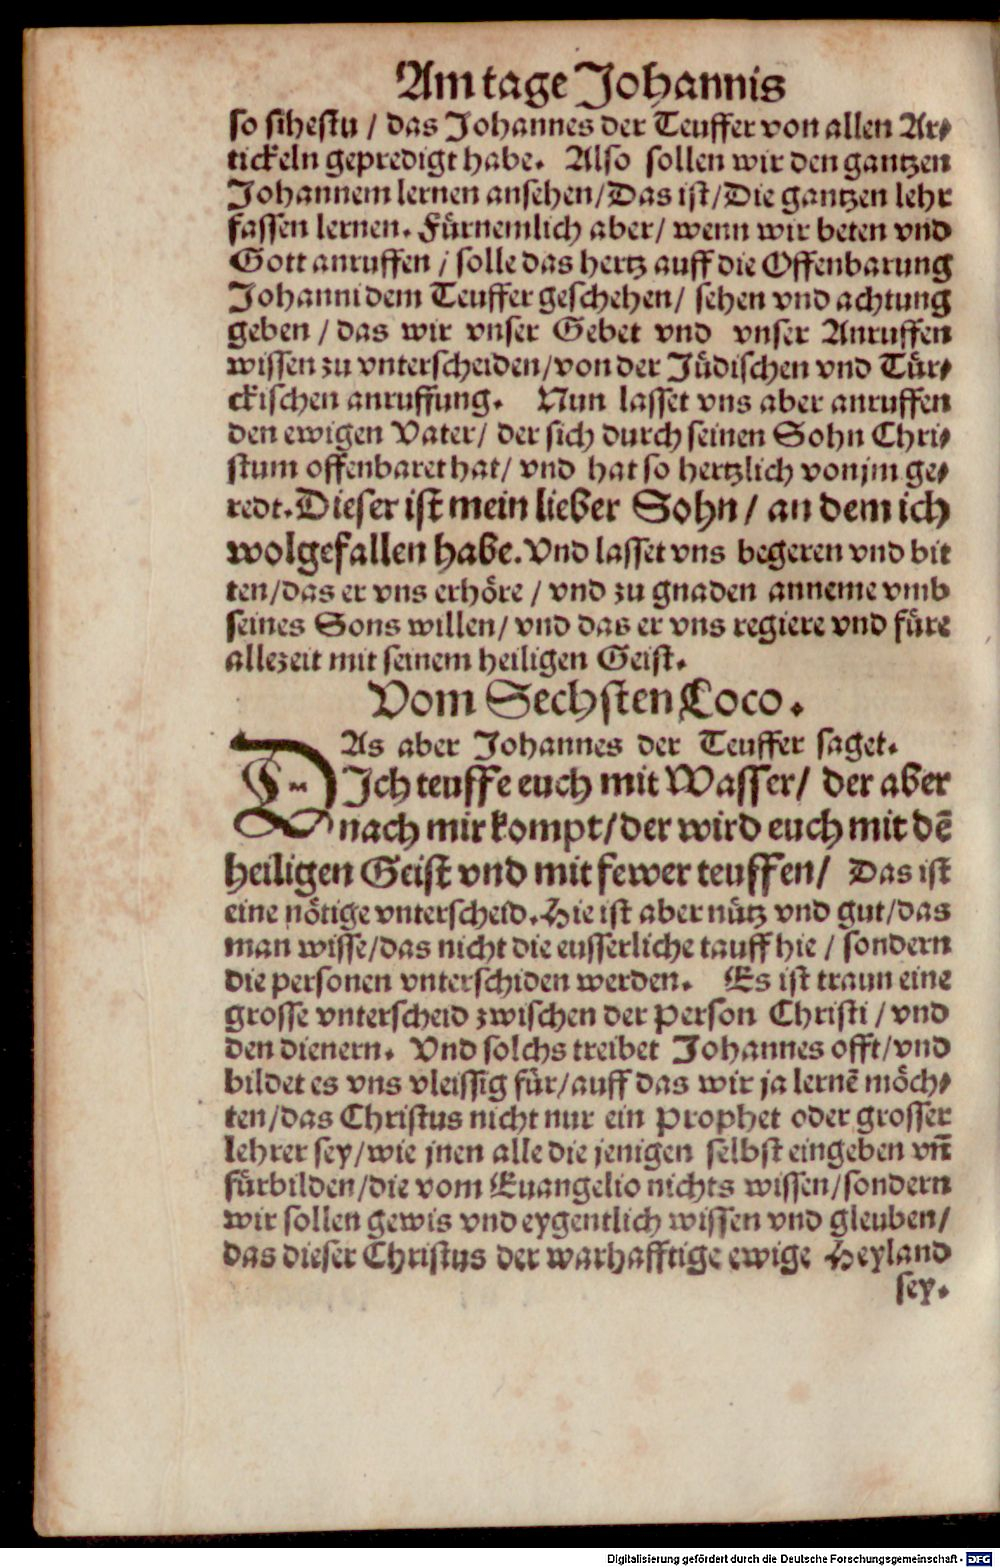 Am tage Johannis
so sihestu / das Johannes der Teuffer von allen Ar⸗
tickeln gepredigt habe. Also sollen wir den gantzen
Johannem lernen ansehen/Das ist/Die gantzen lehr
fassen lernen. Fürnemlich aber/ wenn wir beten vnd
Gott anruffen / solle das hertz auff die Offenbarung
Johanni dem Teuffer geschehen/ sehen vnd achtung
geben / das wir vnser Gebet vnd vnser Anruffen
wissen zu vnterscheiden/von der Jüdischen vnd Tür⸗
ckischen anruffung. Nun lasset vns aber anruffen
den ewigen Vater/ der sich durch seinen Sohn Chri⸗
stum offenbaret hat/ vnd hat so hertzlich von jm ge⸗
redt. Dieser ist mein lieber Sohn / an dem ich
wolgefallen habe. Vnd lasset vns begeren vnd bit
ten/das er vns erhöre / vnd zu gnaden anneme vmb
seines Sons willen/ vnd das er vns regiere vnd füre
allezeit mit seinem heiligen Geist.
Vom Sechsten Loco.
DAs aber Johannes der Teuffer saget.
Jch teuffe euch mit Wasser/ der aber
nach mir kompt/der wird euch mit dē
heiligen Geist vnd mit fewer teuffen/ Das ist
eine nötige vnterscheid. Hie ist aber nütz vnd gut/das
man wisse/das nicht die eusserliche tauff hie / sondern
die personen vnterschiden werden. Es ist traun eine
grosse vnterscheid zwischen der Person Christi / vnd
den dienern. Vnd solchs treibet Johannes offt/vnd
bildet es vns vleissig für/auff das wir ja lernē möch⸗
ten/das Christus nicht nur ein Prophet oder grosser
lehrer sey/wie jnen alle die jenigen selbst eingeben vn̄
fürbilden/die vom Euangelio nichts wissen/sondern
wir sollen gewis vnd eygentlich wissen vnd gleuben/
das dieser Christus der warhafftige ewige Heyland
sey.
Digitalisierung gefördert durch die Deutsche Forschungsgemeinschaft - DFG